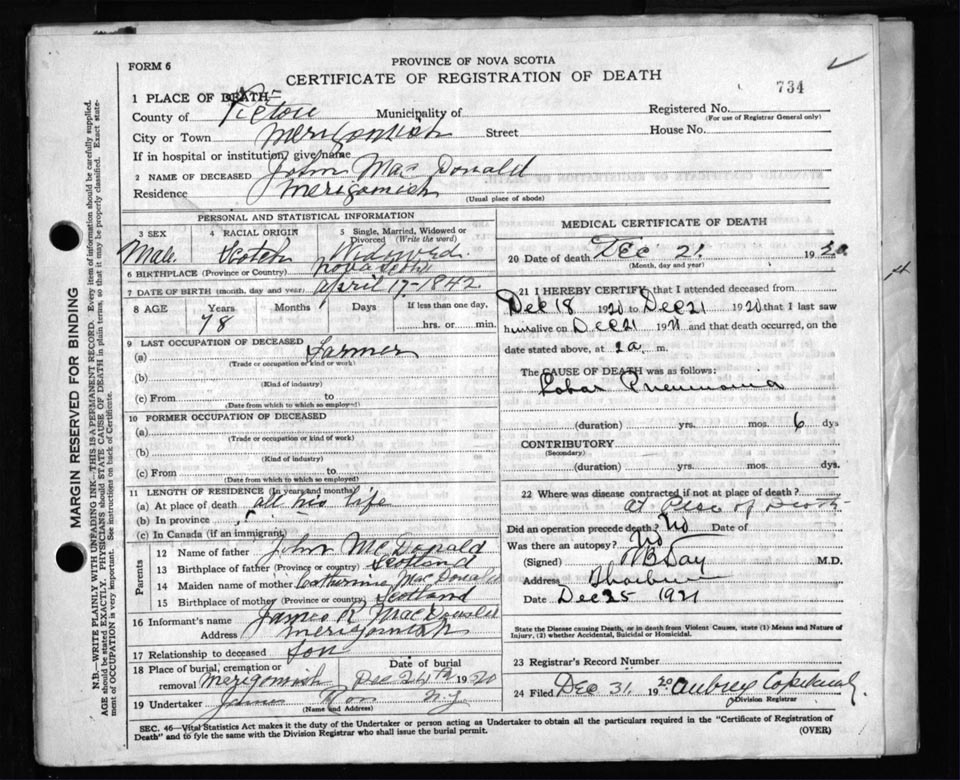 PROVINCE OF NOVA SCOTIA
FORM 6
CERTIFICATE OF REGISTRATION OF DEATH
734
1 PLACE OF DEATH
County of Pictou Municipality of
Registered No.
(For use of Registrar General only)
City or Town Merigomish Street House No.
If in hospital or institution, give name
2 NAME OF DECEASED John MacDonald
Residence Merigomish
(Usual place of abode)
PERSONAL AND STATISTICAL INFORMATION
3 SEX 4 RACIAL ORIGIN 5 Single, Married, Widowed or Divorced (Write the word)
Male Scotch Widowed
6 BIRTHPLACE (Province or Country) Nova Scotia
7 DATE OF BIRTH (month, day and year) April 17-1842
8 AGE Years Months Days If less than one day,
78 hrs. or min.
9 LAST OCCUPATION OF DECEASED
(a) Farmer
(Trade or occupation or kind of work)
(b)
(Kind of industry)
(c) From to
(Date from which to which so employed)
10 FORMER OCCUPATION OF DECEASED
(a)
(Trade or occupation or kind of work)
(b)
(Kind of industry)
(c) From to
(Date from which to which so employed)
11 LENGTH OF RESIDENCE (In years and months)
(a) At place of death all his life
(b) In province
(c) In Canada (if an immigrant)
Parents
12 Name of father John McDonald
13 Birthplace of father (Province or country) Scotland
14 Maiden name of mother Catherine MacDonald
15 Birthplace of mother (Province or country) Scotland
16 Informant's name James R MacDonald
Address Merigomish
17 Relationship to deceased Son
18 Place of burial, cremation or removal Merigomish
Date of burial Dec 24th 1920
19 Undertaker James Ross N.G.
(Name and Address)
MEDICAL CERTIFICATE OF DEATH
20 Date of death Dec 21 1920
(Month, day and year)
21 I HEREBY CERTIFY that I attended deceased from
Dec 18 1920 to Dec 21 1920 that I last saw
him alive on Dec 21 1921 and that death occurred, on the
date stated above, at 2 a. m.
The CAUSE OF DEATH was as follows:
Lobar Pneumonia
(duration) yrs. mos. 6 dys
CONTRIBUTORY
(Secondary)
(duration) yrs. mos. dys.
22 Where was disease contracted if not at place of death?
at Place of Death
Did an operation precede death? No Date of
Was there an autopsy? No
(Signed) Day M.D.
Address Thorburn
Date Dec 25 1921
State the Disease causing Death, or in death from Violent Causes, state (1) Means and Nature of
Injury, (2) whether Accidental, Suicidal or Homicidal.
23 Registrar's Record Number
24 Filed Dec 31 1920 Aubrey Copeland
Division Registrar
SEC. 46—Vital Statistics Act makes it the duty of the Undertaker or person acting as Undertaker to obtain all the particulars required in the "Certificate of Registration of
Death" and to fyle the same with the Division Registrar who shall issue the burial permit.
(OVER)
MARGIN RESERVED FOR BINDING
N.B.—WRITE PLAINLY WITH UNFADING INK—THIS IS A PERMANENT RECORD. Every item of information should be carefully supplied.
AGE should be stated EXACTLY. PHYSICIANS should STATE CAUSE OF DEATH in plain terms, so that it may be properly classified. Exact state-
ment of OCCUPATION is very important. See instructions on back of Certificate.